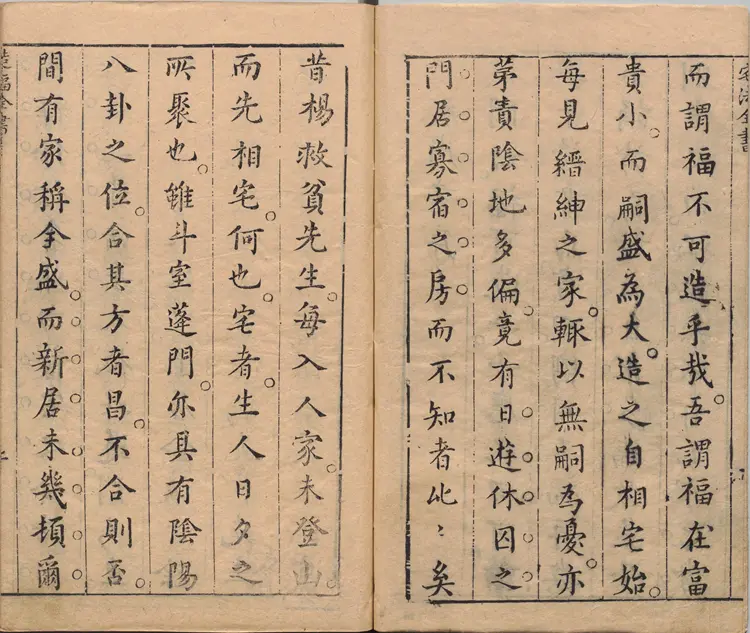 而謂福不可造乎哉。吾謂福在富
貴小。而嗣盛為大。造之自相宅始。
每見縉紳之家。輙以無嗣為憂。亦
茅責陰地多偏。竟有日遊休囚之
門居寡宿之房而不知者比〻矣
昔楊救貧先生。每入人家。未登山。
而先相宅。何也。宅者。生人日夕之
所聚也。雖斗室蓬門。亦具有陰陽
八卦之位。合其方者昌。不合則否。
間有家稱全盛。而新居未幾。頓爾